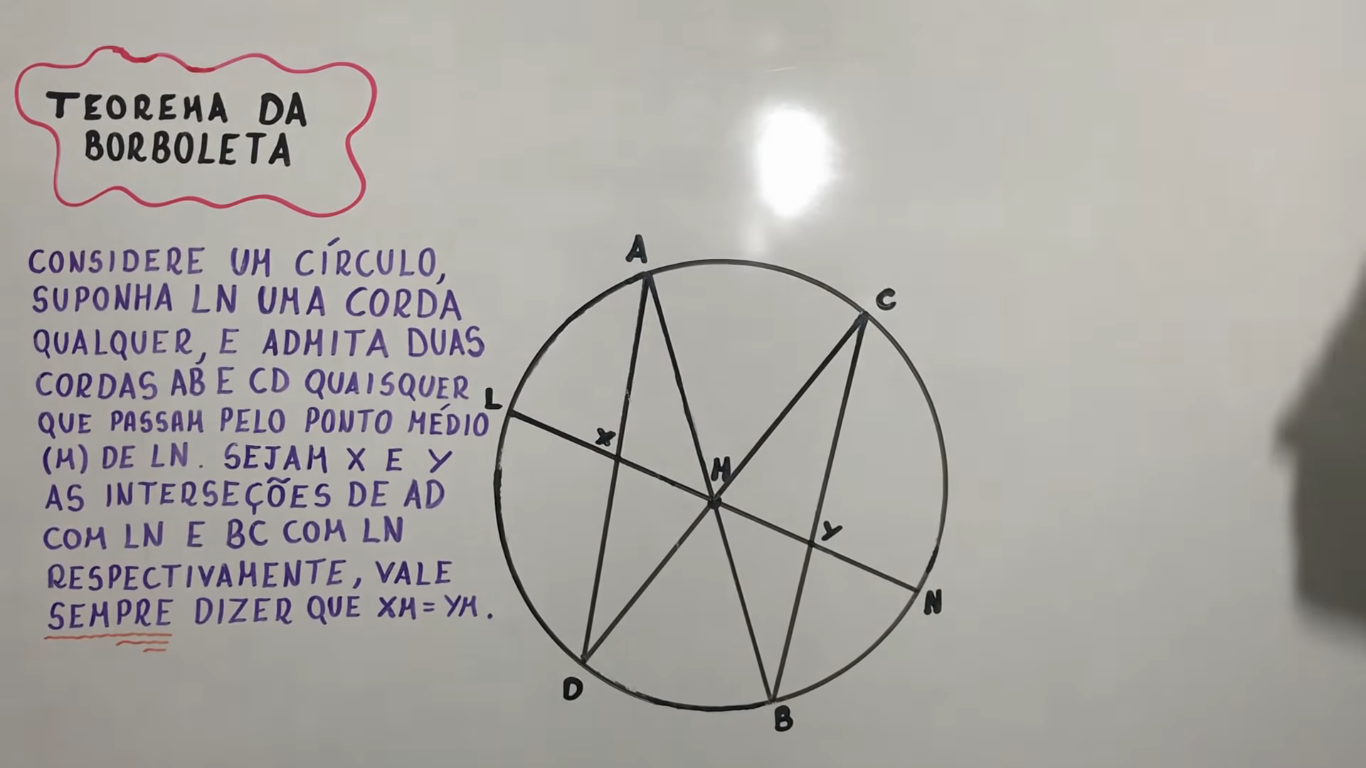 TEOREMA DA
BORBOLETA
CONSIDERE UM CÍRCULO,
SUPONHA LN UMA CORDA
QUALQUER, E ADMITA DUAS
CORDAS AB E CD QUAISQUER
QUE PASSAM PELO PONTO MÉDIO
(M) DE LN. SEJAM X E Y
AS INTERSEÇÕES DE AD
COM LN E BC COM LN
RESPECTIVAMENTE, VALE
SEMPRE DIZER QUE XM = YM.
A
C
L
X
M
Y
N
D
B